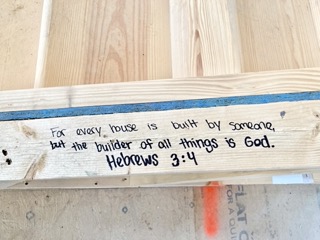 For every house is built by someone,
but the builder of all things is God.
Hebrews 3:4
FLAT
FOR A QU